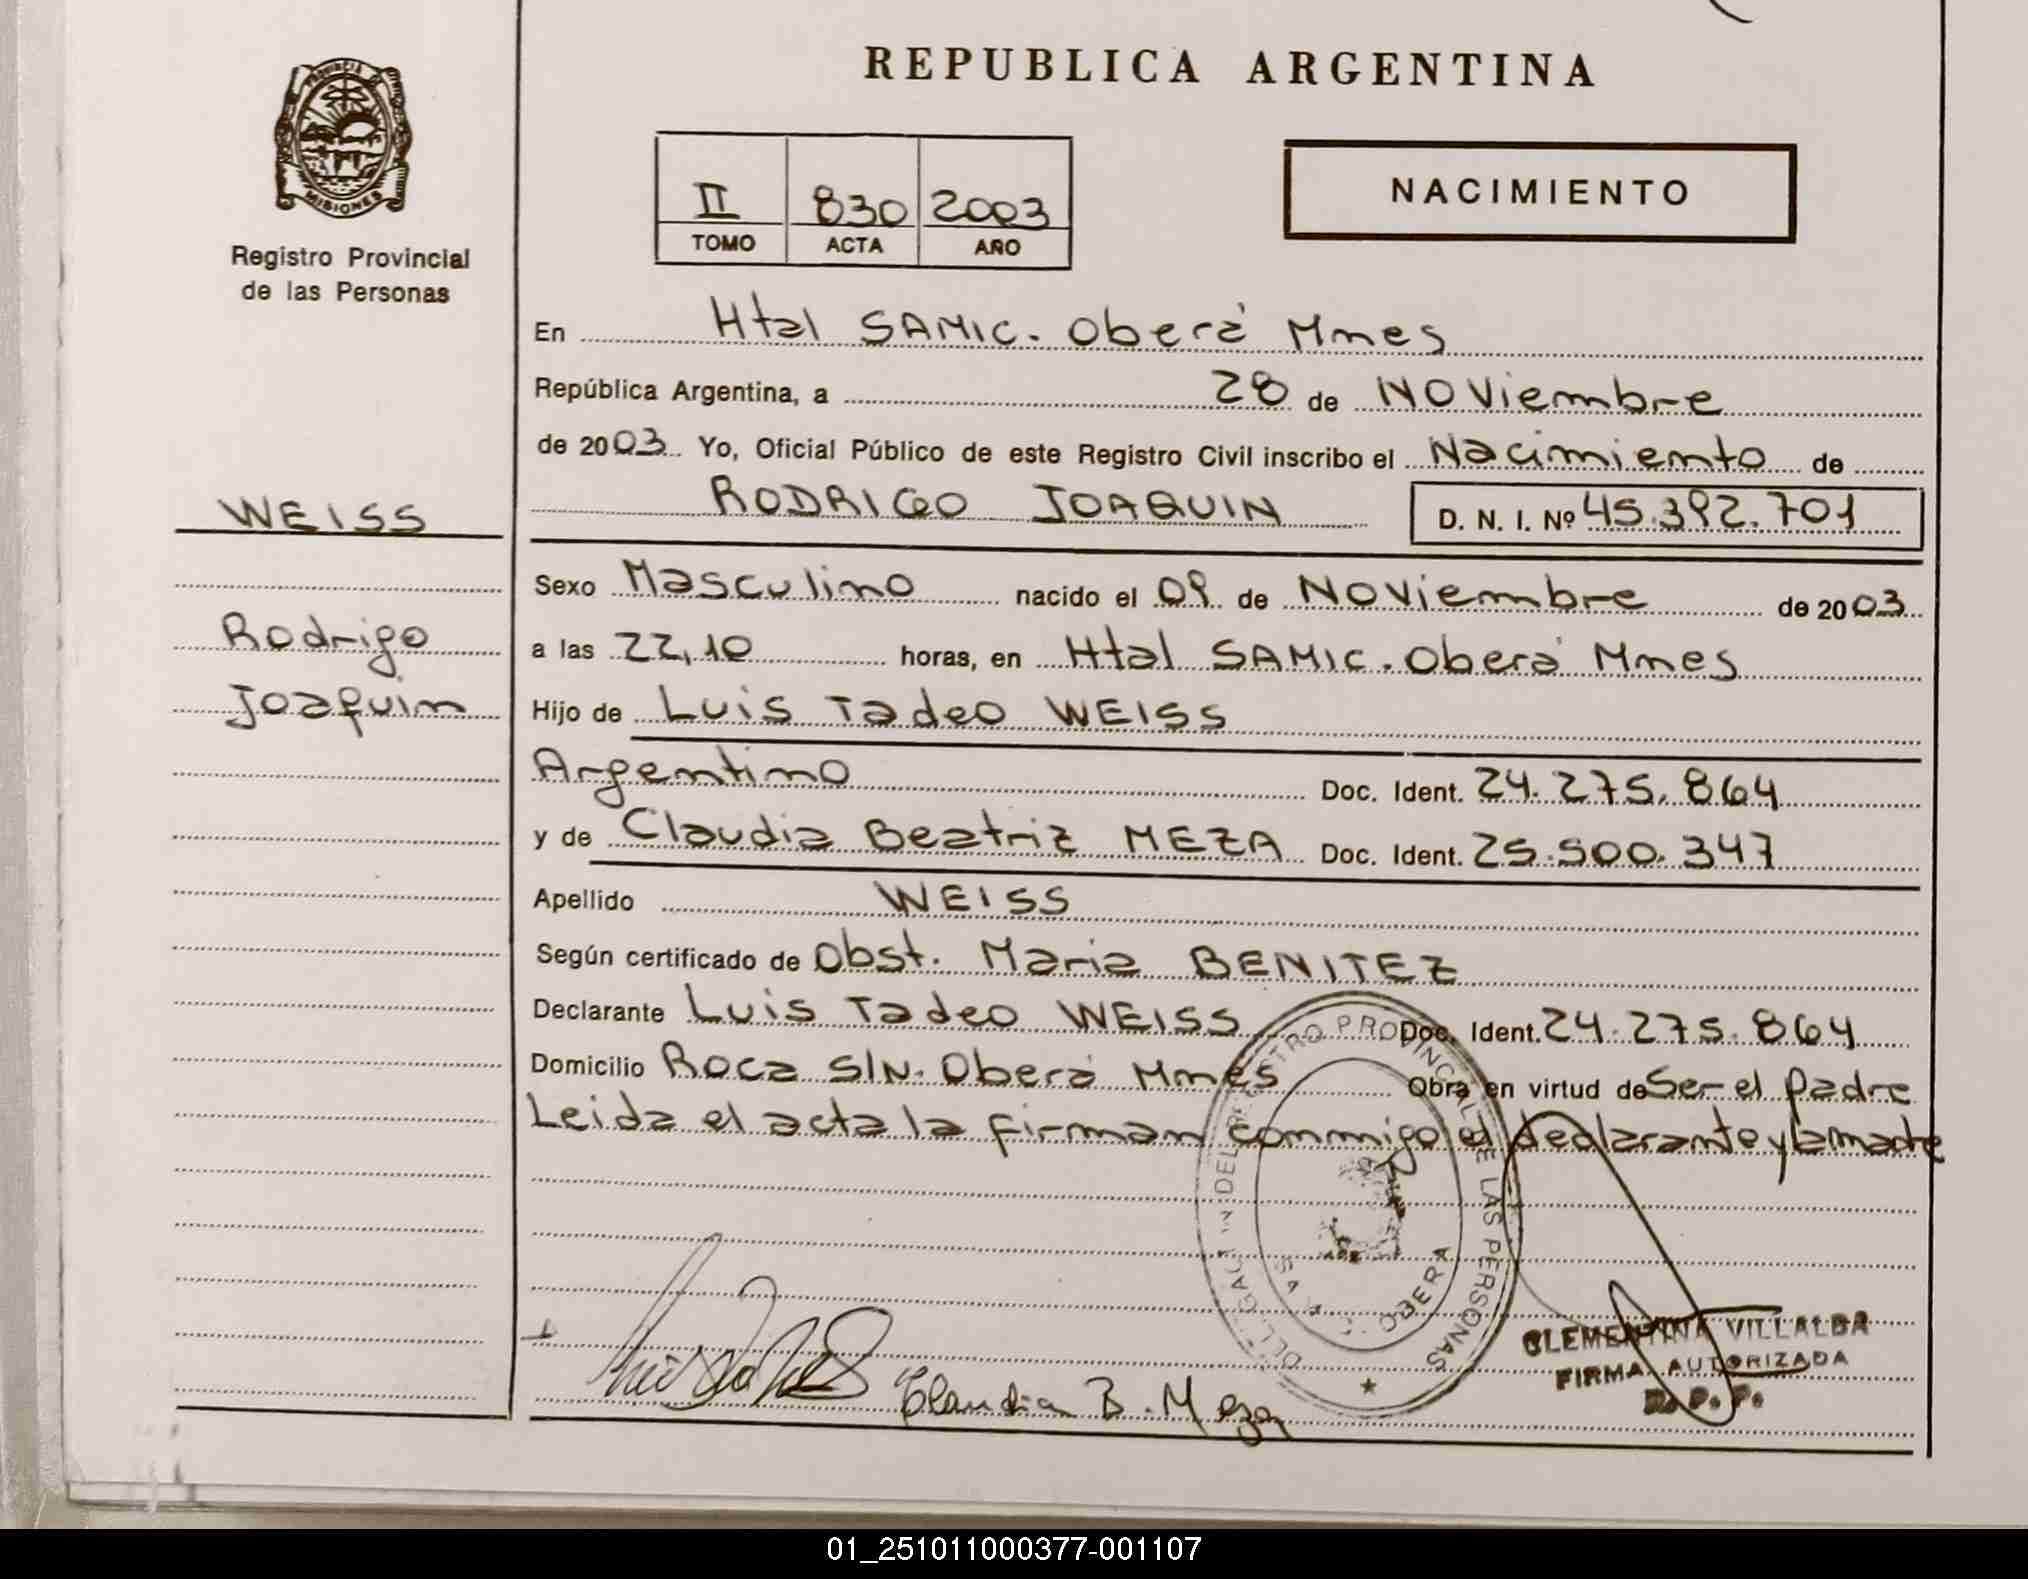 PROVINCIA DE
MISIONES
Registro Provincial
de las Personas
WEISS
Rodrigo
Joaquin
REPUBLICA ARGENTINA
II 830 2003
TOMO ACTA AÑO
NACIMIENTO
En Htal SAMIC. Oberá Mnes
República Argentina, a 28 de NOViembre
de 2003 Yo, Oficial Público de este Registro Civil inscribo el Nacimiento de
RODRIGO JOAQUIN D. N. I. Nº 45.392.701
Sexo Masculino nacido el 09 de NOViembre de 2003
a las 22,10 horas, en Htal SAMIC. Oberá Mnes
Hijo de Luis Tadeo WEISS
Argentino Doc. Ident. 24.275.864
y de Claudia Beatriz MEZA Doc. Ident. 25.500.347
Apellido WEISS
Según certificado de Obst. Maria BENITEZ
Declarante Luis Tadeo WEISS Doc. Ident. 24.275.864
Domicilio Roca S/N. Oberá Mnes Obra en virtud de Ser el padre
Leida el acta la firman conmigo el declarante y la madre
REGISTRO PROVINCIAL DE LAS PERSONAS
OBERA
Claudia B. Meza
CLEMENTINA VILLALBA
FIRMA AUTORIZADA
R. P. P.
01_251011000377-001107